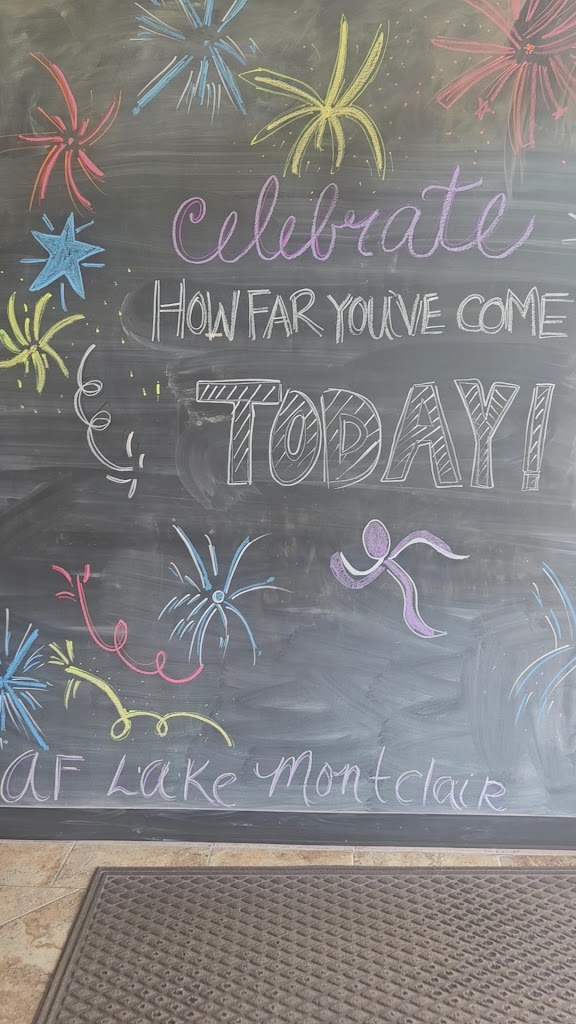 celebrate
HOW FAR YOU'VE COME
TODAY!
AF Lake Montclair